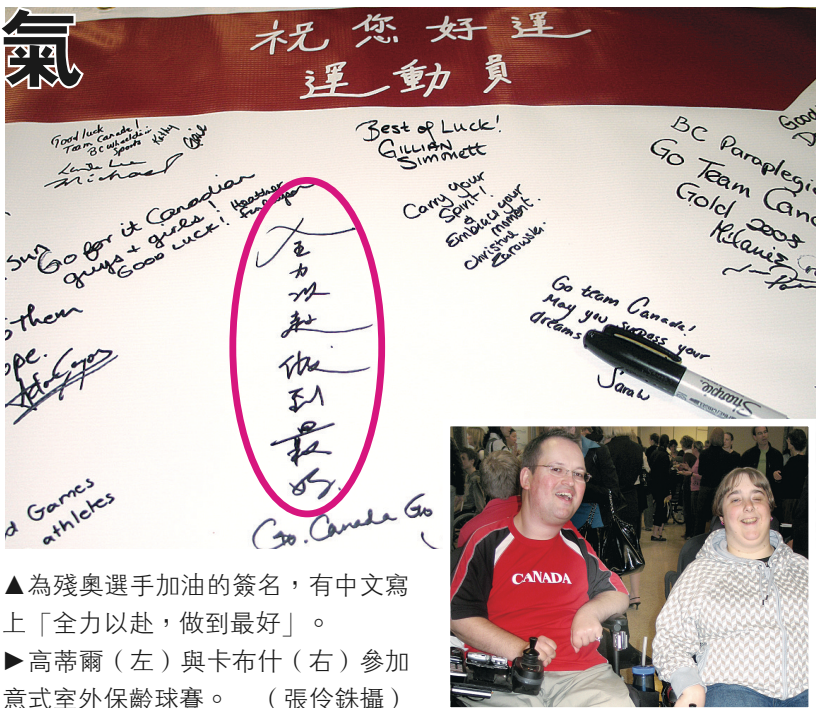 氣
祝您好運
運動員
Good luck
Team Canada!
BC Wheelchair
Sports
Kathy
Gail
Michael
Best of Luck!
GILLIAN
Simmett
BC Paraplegi
Go Team Cana
Gold 2008
Melanie
Good
Go for it Canadian
guys + girls!
GOOD LUCK!
Heather
Sun
Carry your
Spirit!
&
Embrace your
moment.
Christine
Zarowski
全力以赴做到最好
them
ope.
Go team Canada!
May you surpass your
dreams
Sarah
Sharpie
d Games
athletes
Go Canada Go
CANADA
▲為殘奧選手加油的簽名,有中文寫
上「全力以赴,做到最好」。
▶高蒂爾(左)與卡布什(右)參加
意式室外保齡球賽。 (張伶銖攝)